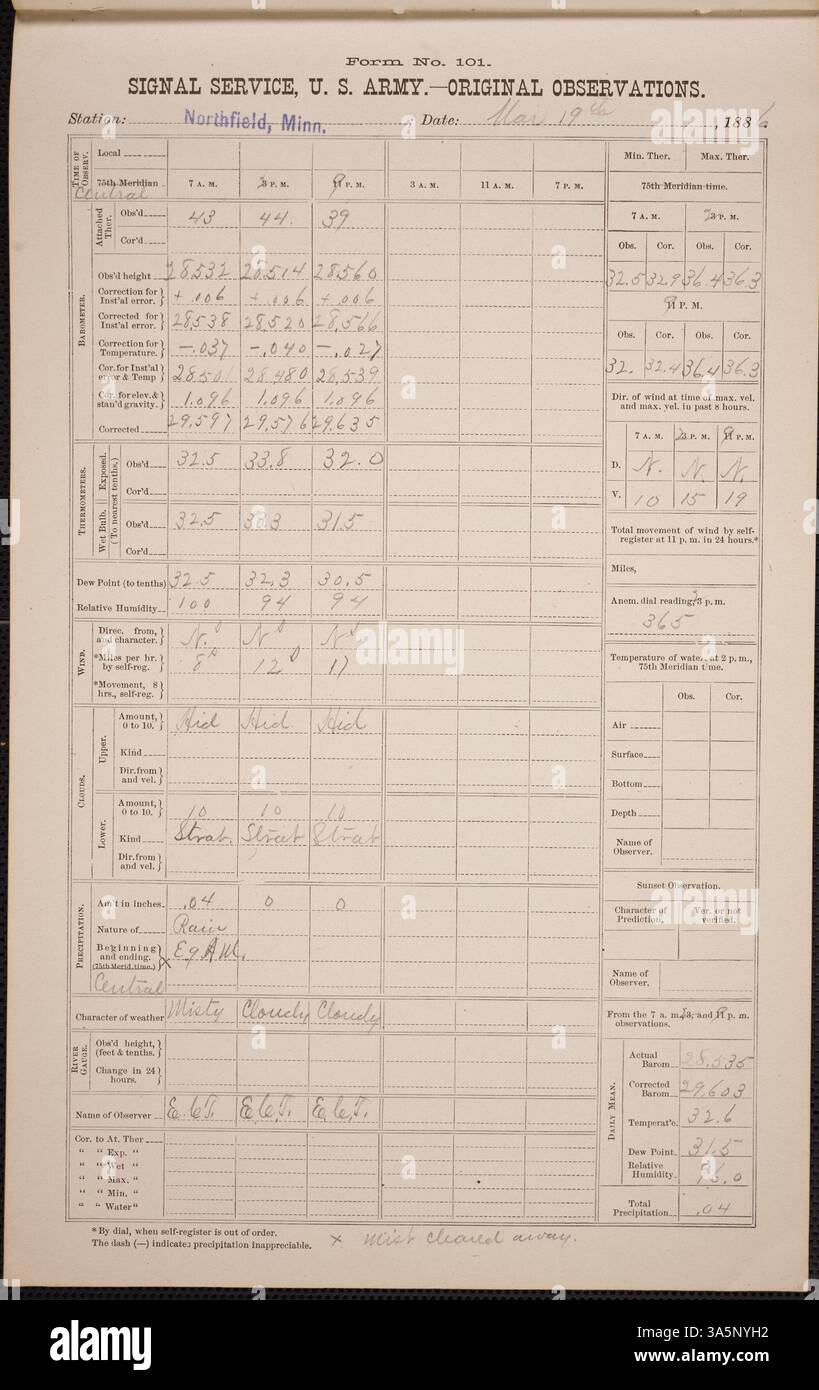 Form No. 101.
SIGNAL SERVICE, U. S. ARMY.—ORIGINAL OBSERVATIONS.
Station: Northfield, Minn. Date: Mar 19th, 1886.
TIME OF OBSERV.
Local
75th Meridian 7 A. M. 3 P. M. 11 P. M. 3 A.M. 11 A.M. 7 P.M.
Central
BAROMETER.
Attached Ther.
Obs'd 43 44. 39
Cor'd
Obs'd height 28.532 28.514 28.560
Correction for Inst'al error. +.006 +.006 +.006
Corrected for Inst'al error. 28.538 28.520 28.566
Correction for Temperature. —.037 —.040 —.027
Cor. for Inst'al error & Temp 28.501 28.480 28.539
Cor. for elev. & stan'd gravity. 1.096 1.096 1.096
Corrected 29.597 29.576 29.635
THERMOMETERS.
(To nearest tenths.)
Exposed.
Obs'd 32.5 33.8 32.0
Cor'd
Wet Bulb.
Obs'd 32.5 31.5
Cor'd
Dew Point (to tenths) 32.5 32.3 30.5
Relative Humidity 100 94 94
WIND.
Direc. from, and character. N. N N
*Miles per hr. by self-reg. 8 12 17
*Movement, 8 hrs., self-reg.
CLOUDS.
Upper.
Amount, 0 to 10. Hid Hid Hid
Kind
Dir. from and vel.
Lower.
Amount, 0 to 10. 10 10 10
Kind Strat. Strat Strat
Dir. from and vel.
PRECIPITATION.
Am't in inches. .04 0 0
Nature of Rain
Beginning and ending. (75th Merid. time.) x E 9 A.M.
Central
Character of weather Misty Cloudy Cloudy
RIVER GAUGE.
Obs'd height, (feet & tenths.)
Change in 24 hours.
Name of Observer E.C.T. E.C.T. E.C.T.
Cor. to At. Ther
" " Exp. "
" " Wet "
" " Max. "
" " Min. "
" " Water "
* By dial, when self-register is out of order.
The dash (—) indicates precipitation inappreciable.
x Mist cleared away.
Min. Ther. Max. Ther.
75th Meridian time.
7 A. M. 3 P. M.
Obs. Cor. Obs. Cor.
32.5 32.9 36.4 36.3
11 P. M.
Obs. Cor. Obs. Cor.
32. 32.4 36.4 36.3
Dir. of wind at time of max. vel. and max. vel. in past 8 hours.
7 A. M. 3 P. M. 11 P. M.
D. N. N. N.
V. 10 15 19
Total movement of wind by self-register at 11 p. m. in 24 hours.*
Miles,
Anem. dial reading, 3 p. m.
365
Temperature of water at 2 p. m., 75th Meridian time.
Obs. Cor.
Air
Surface
Bottom
Depth
Name of Observer.
Sunset Observation.
Character of Prediction. Ver. or not verified.
Name of Observer.
From the 7 a. m., 3, and 11 p. m. observations.
DAILY MEAN.
Actual Barom 28.535
Corrected Barom 29.603
Temperat'e. 32.6
Dew Point. 31.5
Relative Humidity. 96.0
Total Precipitation .04
alamy
Image ID: 3A5NYH2
www.alamy.com